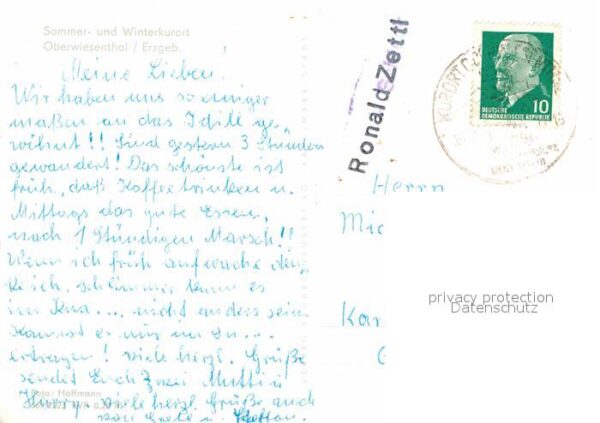 Sommer- und Winterkurort
Oberwiesenthal / Erzgeb.
Meine Lieben!
Wir haben uns so einiger
maßen an das Idill ge¬
wöhnt!! Sind gestern 3 Stunden
gewandert! Das schönste ist
früh, das Kaffeetrinken u.
Mittags das gute Essen,
nach 1 Stündigen Marsch!!
Wenn ich früh aufwache den
ke ich, schlimmer kann es
im Kna.... nicht anders sein
es nur
ertragen! viele herzl. Grüße
sendet Euch zwei Mutti u
Harry viele herzl. Grüße auch
von
Foto: Hoffmann
Ronald Zettl
10
DEUTSCHE
DEMOKRATISCHE REPUBLIK
KURORT
Herrn
Mic
Kar
privacy protection
Datenschutz